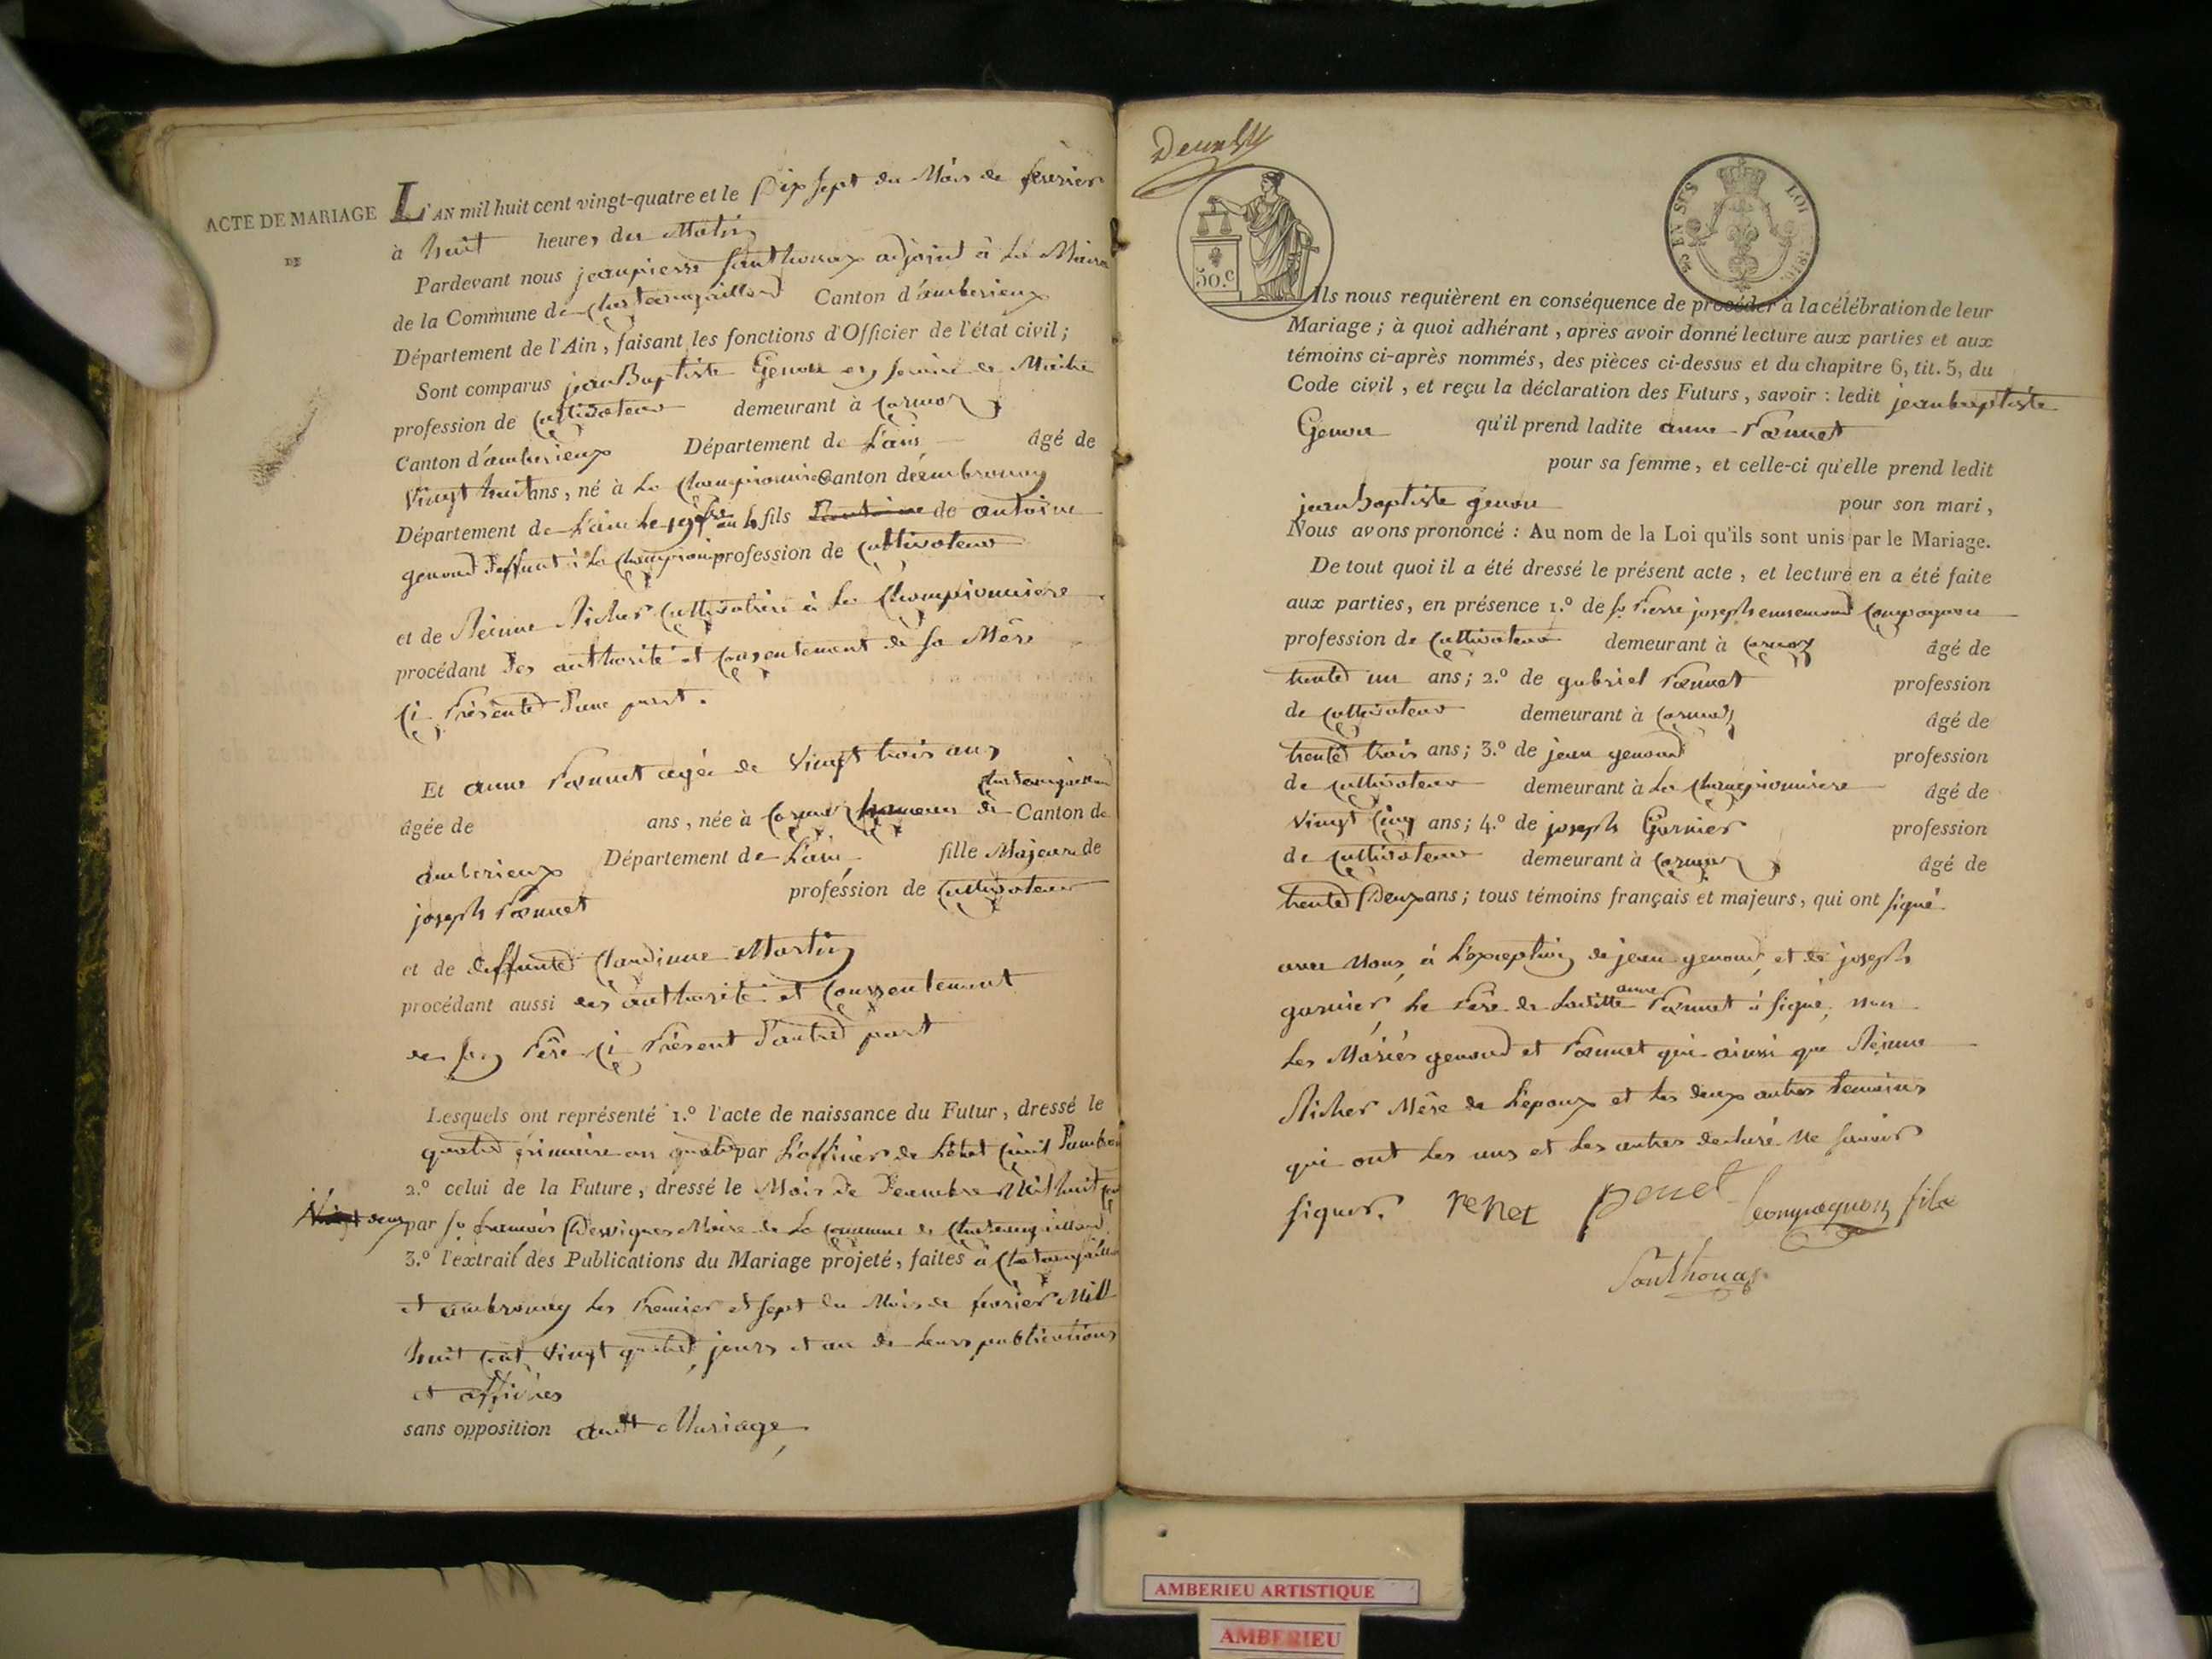 ACTE DE MARIAGE
DE
L'AN mil huit cent vingt-quatre et le Dix sept du Mois de fevrier
à huit heures du Matin
Pardevant nous jeanpierre Santhonax adjoint à La Mairie
de la Commune de Chateaugaillard Canton d'amberieux
Département de l'Ain, faisant les fonctions d'Officier de l'état civil;
Sont comparus jean Baptiste Genou en service de Maitre
profession de Cultivateur demeurant à Cormoz
Canton d'amberieux Département de L'ain âgé de
Vingt huit ans, né à La Championniere Canton de ambronay
Département de L'ain Le fils de antoine
genoud deffunt à La Champion profession de Cultivateur
et de Réinne Richer Cultivatrice à La Championniere
procédant des authorité et Consentement de sa Mêre
Ci Présente D'une part.
Et anne Pœnnet agée de Vingt trois ans
Chateaugaillard
âgée de ans, née à Cormoz hameau de Canton de
amberieux Département de L'ain fille Majeure de
joseph Pœnnet profession de Cultivateur
et de deffunte Claudinne Martin
procédant aussi des authorité et Conssentement
de son Pêre Ci Présent D'autre part
Lesquels ont représenté 1.º l'acte de naissance du Futur, dressé le
quatre frimaire an quatre par L'officier de L'état Civil D'ambro
2.º celui de la Future, dressé le Mois De Decembre Mil huit
par sr francois Desvignes Maire de La Commune de Chateaugaillard
3.º l'extrait des Publications du Mariage projeté, faites à Chateaugailla
et ambronay les Premier et sept du Mois de fevrier Mill
huit Cent Vingt quatre jours et an de Leurs publications
et affiches
sans opposition audt Mariage
50.c
EN SUS
LOI
1816.
Ils nous requièrent en conséquence de procéder à la célébration de leur
Mariage; à quoi adhérant, après avoir donné lecture aux parties et aux
témoins ci-après nommés, des pièces ci-dessus et du chapitre 6, tit. 5, du
Code civil, et reçu la déclaration des Futurs, savoir: ledit jeanbaptiste
Genou qu'il prend ladite anne Pœnnet
pour sa femme, et celle-ci qu'elle prend ledit
jean baptiste genou pour son mari,
Nous avons prononcé: Au nom de la Loi qu'ils sont unis par le Mariage.
De tout quoi il a été dressé le présent acte, et lecture en a été faite
aux parties, en présence 1.º de sr Pierre joseph ennemond Compagnon
profession de Cultivateur demeurant à Cormoz âgé de
trente un ans; 2.º de gabriel Pœnnet profession
de Cultivateur demeurant à Cormoz âgé de
trente trois ans; 3.º de jean genoud profession
de Cultivateur demeurant à La Championniere âgé de
Vingt Cinq ans; 4.º de joseph Garnier profession
de Cultivateur demeurant à Cormoz âgé de
trente Deux ans; tous témoins français et majeurs, qui ont signé
avec Nous, à L'exception de jean genoud, et de joseph
anne
garnier, Le Pêre de Laditte Pœnnet à signé, non
Les Mariés genoud et Pœnnet qui ainsi que Réinne
Richer Mêre de L'epoux et les deux autres temoins
qui ont les uns et les autres declaré Ne savoir
signer. Penet penet Compagnon fils
Santhonax
AMBERIEU ARTISTIQUE
AMBERIEU